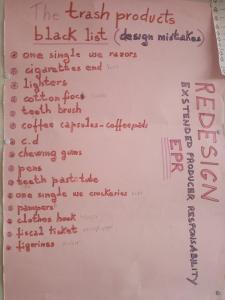 The trash products
black list (design mistakes)
one single use razors
cigarathes end
lighters
cotton fiocs
teeth brush
coffee capsules - coffeepads
c.d
chewing gums
pens
teeth past-tube
one single we crockeries
pampers
clothes hook
fiscal ticket
figerines
REDESIGN
EXSTENDED PRODUCER RESPONSABILITY
EPR